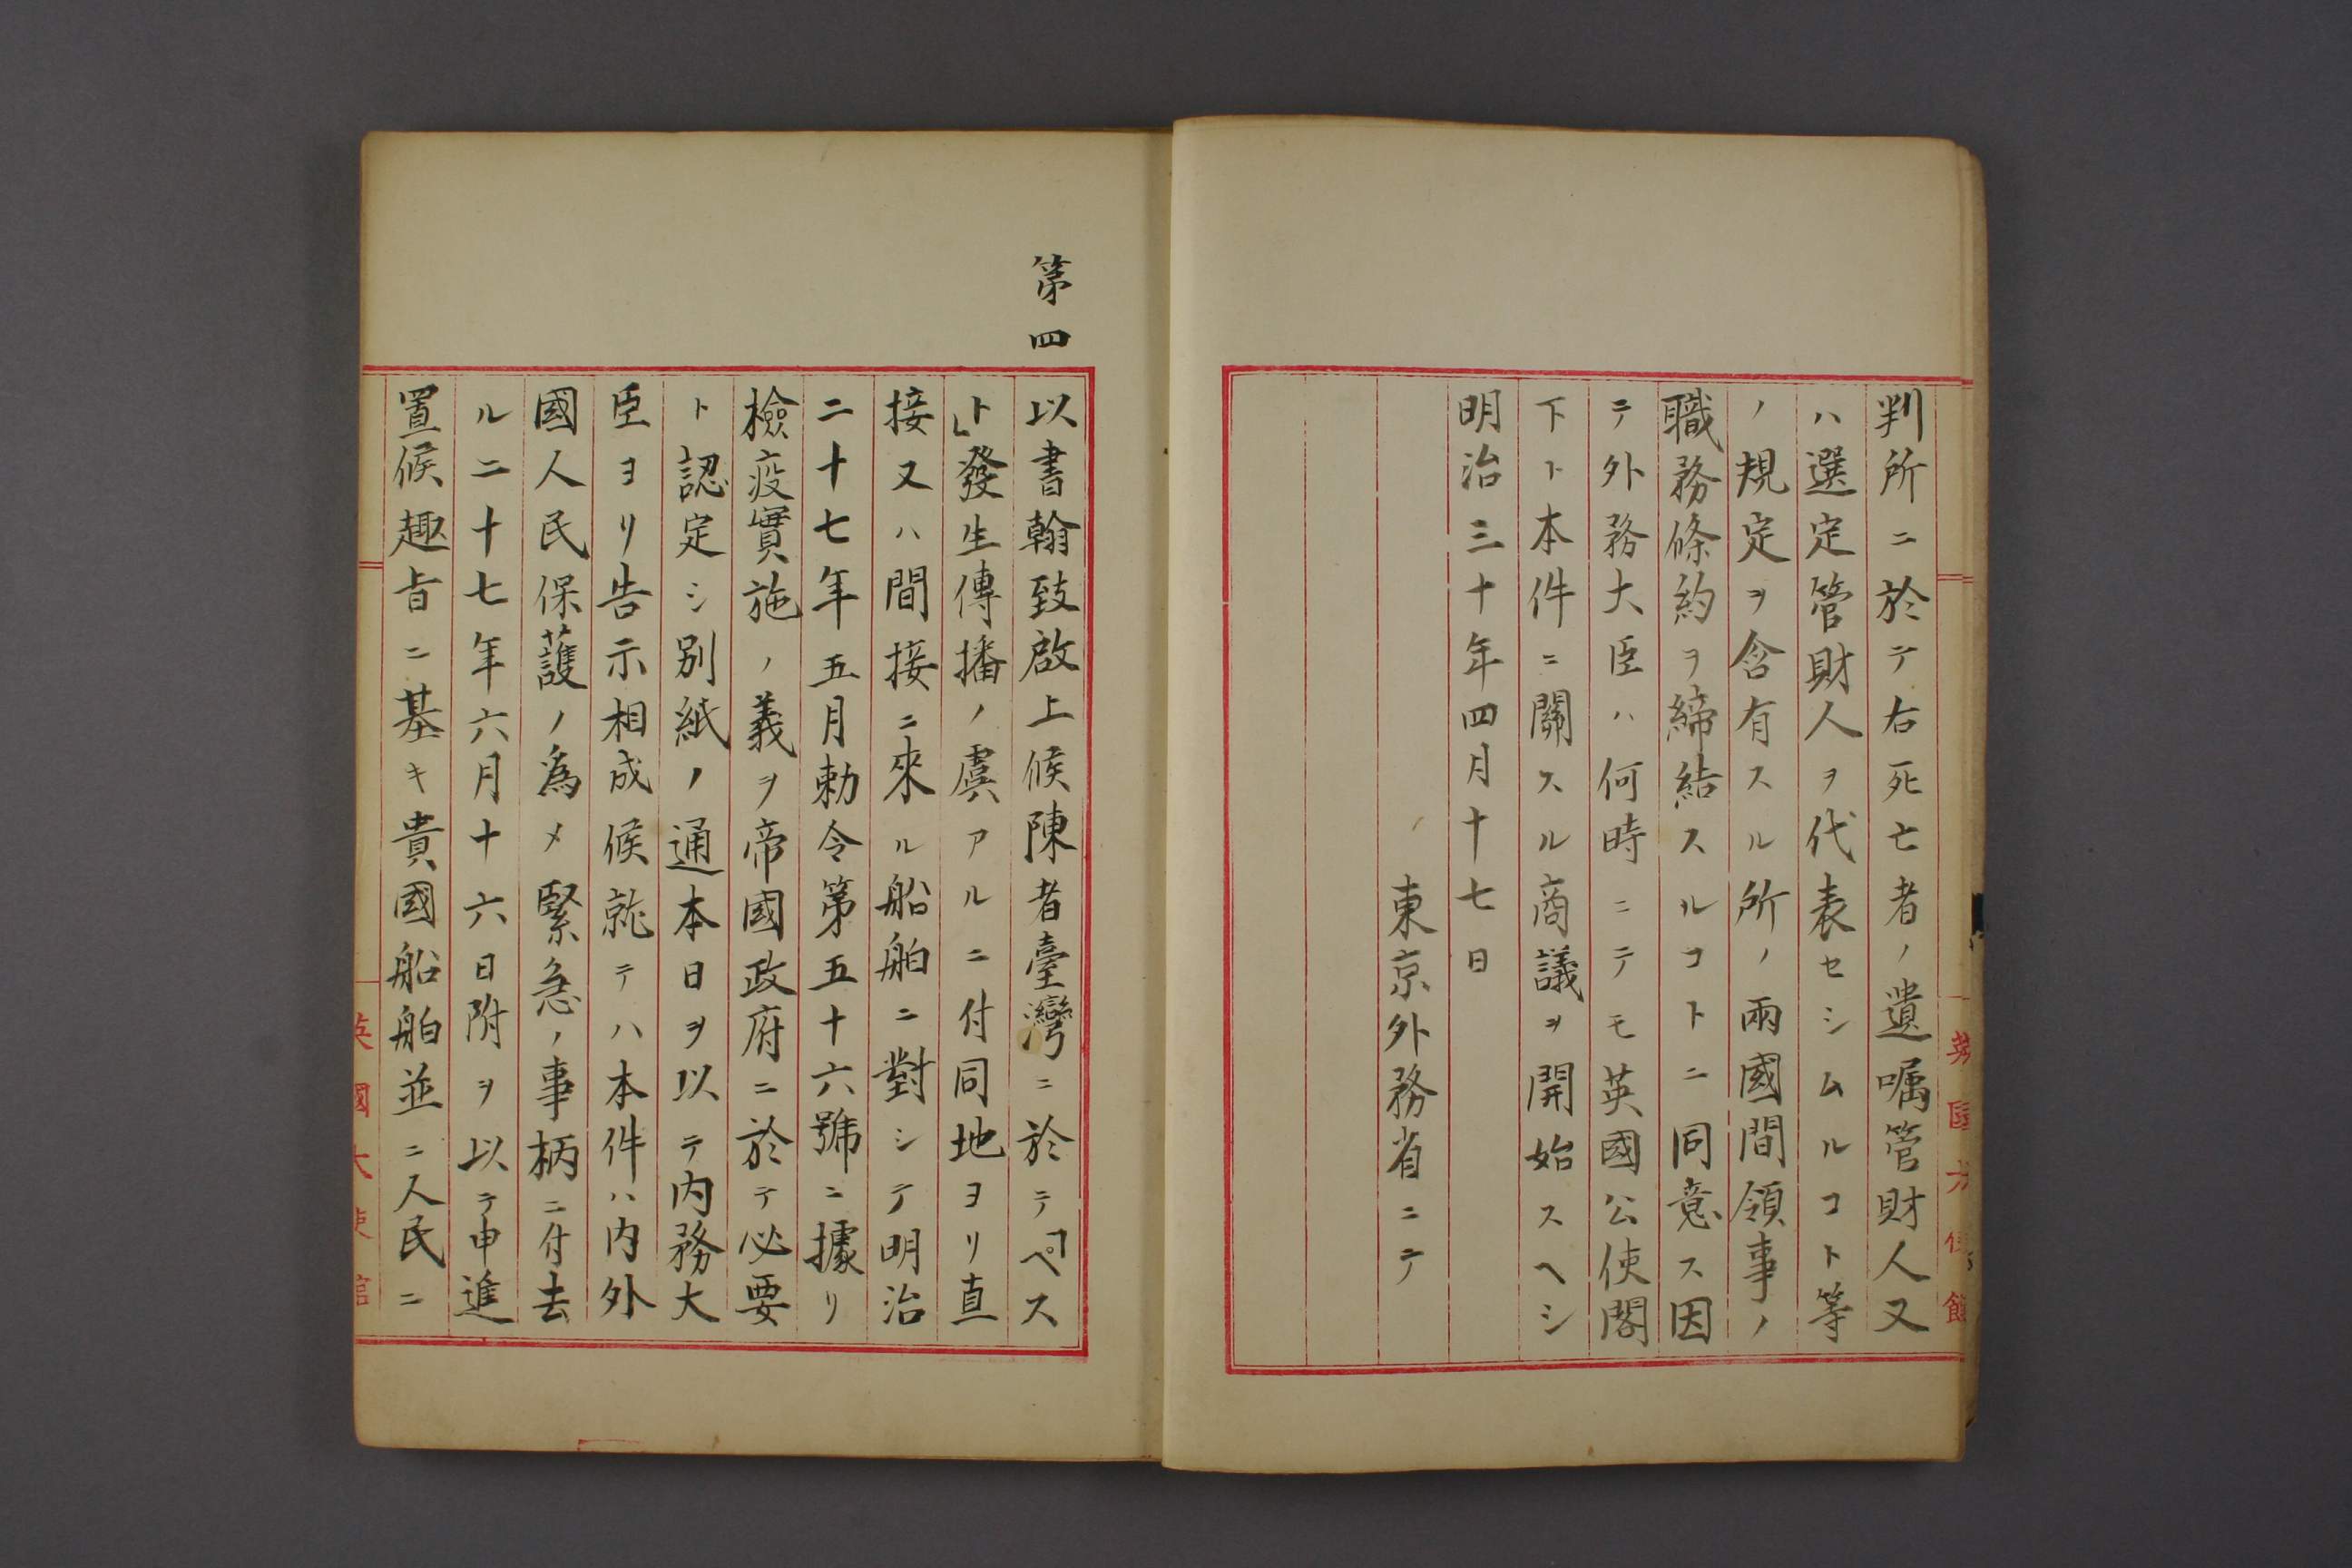 判所ニ於テ右死亡者ノ遺嘱管財人又
ハ選定管財人ヲ代表セシムルコト等
ノ規定ヲ含有スル所ノ兩國間領事ノ
職務條約ヲ締結スルコトニ同意ス因
テ外務大臣ハ何時ニテモ英國公使閣
下ト本件ニ關スル商議ヲ開始スヘシ
明治三十年四月十七日
東京外務省ニテ
第四
以書翰致啟上候陳者臺灣ニ於テ「ペス
ト」發生傳播ノ虞アルニ付同地ヨリ直
接又ハ間接ニ來ル船舶ニ對シテ明治
二十七年五月勅令第五十六號ニ據リ
檢疫實施ノ義ヲ帝國政府ニ於テ必要
ト認定シ別紙ノ通本日ヲ以テ内務大
臣ヨリ告示相成候就テハ本件ハ内外
國人民保護ノ為メ緊急ノ事柄ニ付去
ル二十七年六月十六日附ヲ以テ申進
置候趣旨ニ基キ貴國船舶並ニ人民ニ
英國大使館